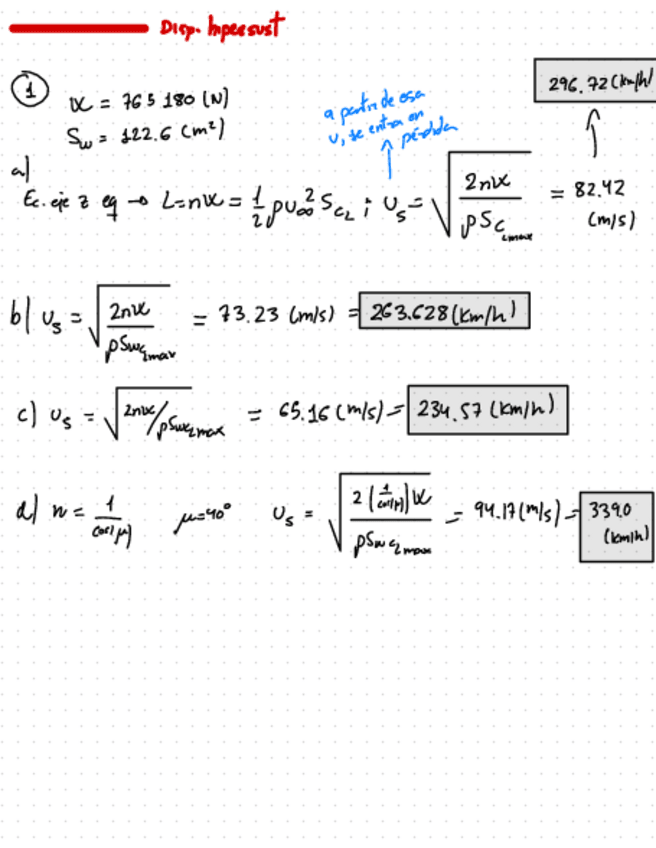 Disp. hipersust
1
W = 765 180 (N)
Sw = 122.6 (m²)
a partir de esa
u, se entra en
pérdida
296.72 (km/h)
a)
Ec. eje z eq → L=nW = 1/2 ρu∞² S c_L ; u_s = √(2nW / ρ S c_Lmax) = 82.42 (m/s)
b) u_s = √(2nW / ρ Sw c_Lmax) = 73.23 (m/s) = 263.628 (km/h)
c) u_s = √(2nW / ρ Sw c_Lmax) = 65.16 (m/s) = 234.57 (km/h)
d) n = 1 / cos(μ) μ=40° u_s = √(2 (1/cos(μ)) W / ρ Sw c_Lmax) = 94.17 (m/s) = 339.0 (km/h)